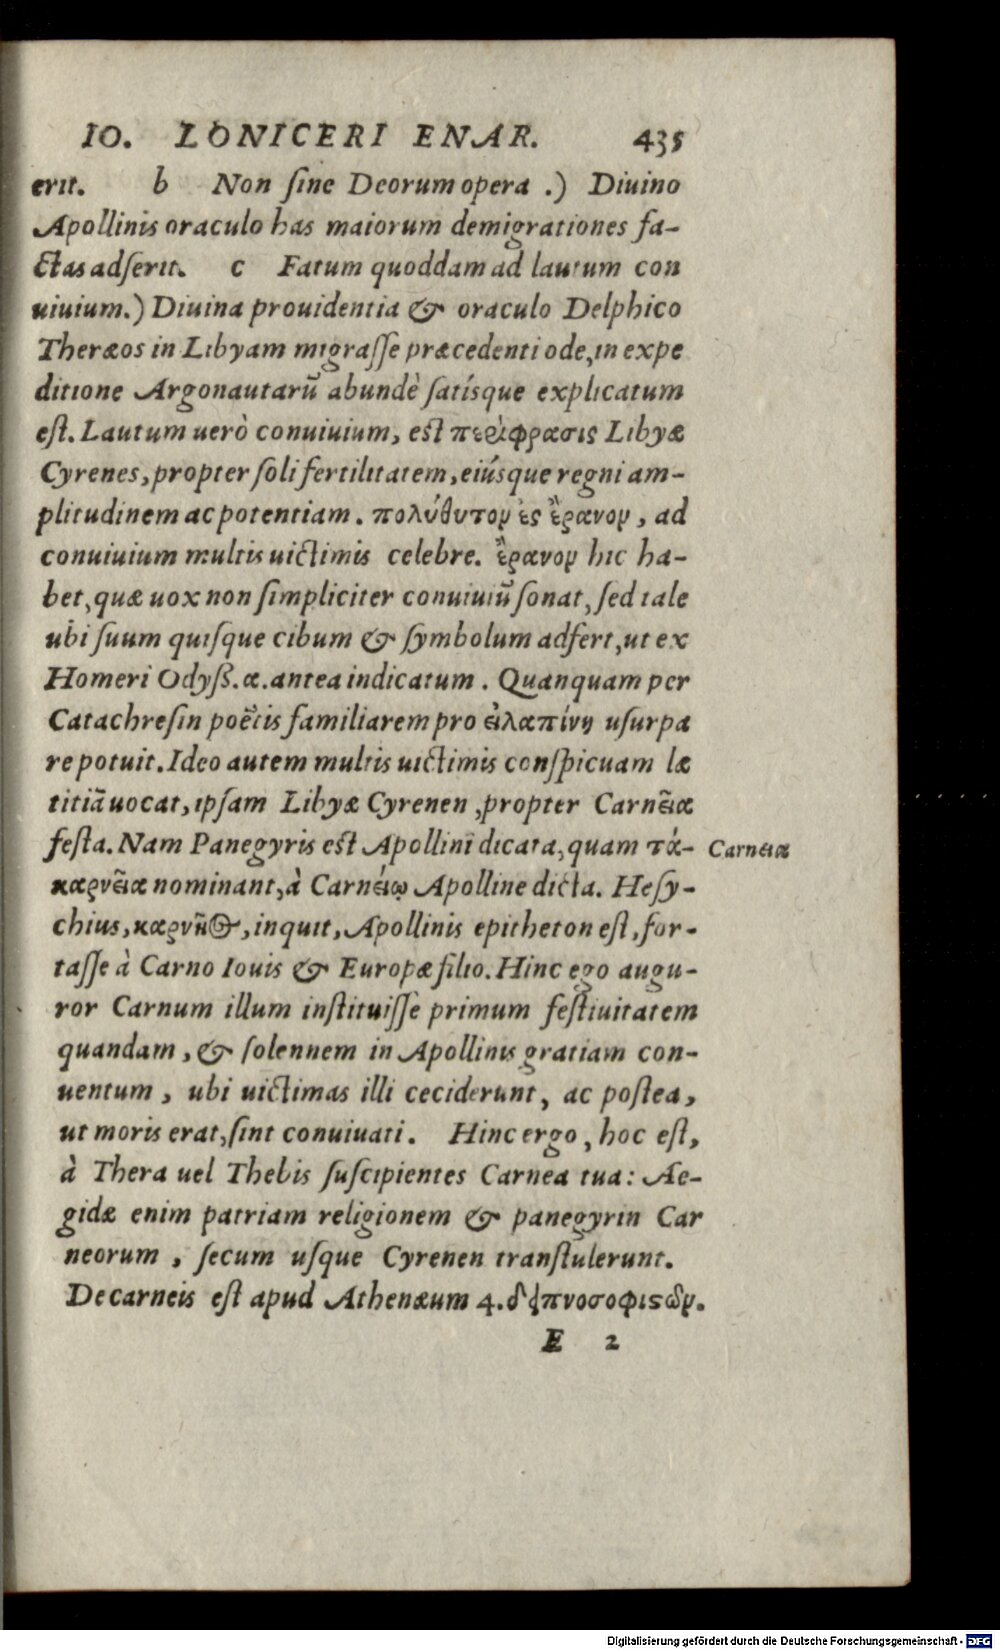 IO. LONICERI ENAR. 435
erit. b Non ſine Deorum opera .) Diuino
Apollinis oraculo has maiorum demigrationes fa-
ctas adſerit. c Fatum quoddam ad lautum con
uiuium.) Diuina prouidentia & oraculo Delphico
Theræos in Libyam migraſſe præcedenti ode, in expe
ditione Argonautarū abundè ſatísque explicatum
eſt. Lautum uerò conuiuium, eſt περίφρασις Libyæ
Cyrenes, propter ſoli fertilitatem, eiúsque regni am-
plitudinem ac potentiam. πολύθυτον ἐς ἔρανον, ad
conuiuium multis uictimis celebre. ἔρανον hic ha-
bet, quæ uox non ſimpliciter conuiuiū ſonat, ſed tale
ubi ſuum quiſque cibum & ſymbolum adfert, ut ex
Homeri Odyß. α. antea indicatum. Quanquam per
Catachreſin poëtis familiarem pro εἰλαπίνη uſurpa
re potuit. Ideo autem multis uictimis conſpicuam læ
titiā uocat, ipſam Libyæ Cyrenen, propter Carnεῖα
feſta. Nam Panegyris eſt Apollini dicata, quam τά- Carnεια
καρνεῖα nominant, à Carnείῳ Apolline dicta. Heſy-
chius, καρνῆος, inquit, Apollinis epitheton eſt, for-
taſſe à Carno Iouis & Europæ filio. Hinc ego augu-
ror Carnum illum inſtituiſſe primum feſtiuitatem
quandam, & ſolennem in Apollinis gratiam con-
uentum, ubi uictimas illi ceciderunt, ac poſtea,
ut moris erat, ſint conuiuati. Hinc ergo, hoc eſt,
à Thera uel Thebis ſuſcipientes Carnea tua: Ae-
gidæ enim patriam religionem & panegyrin Car
neorum, ſecum uſque Cyrenen tranſtulerunt.
De carneis eſt apud Athenæum 4. δειπνοσοφιςῶν.
E 2
Digitalisierung gefördert durch die Deutsche Forschungsgemeinschaft - DFG